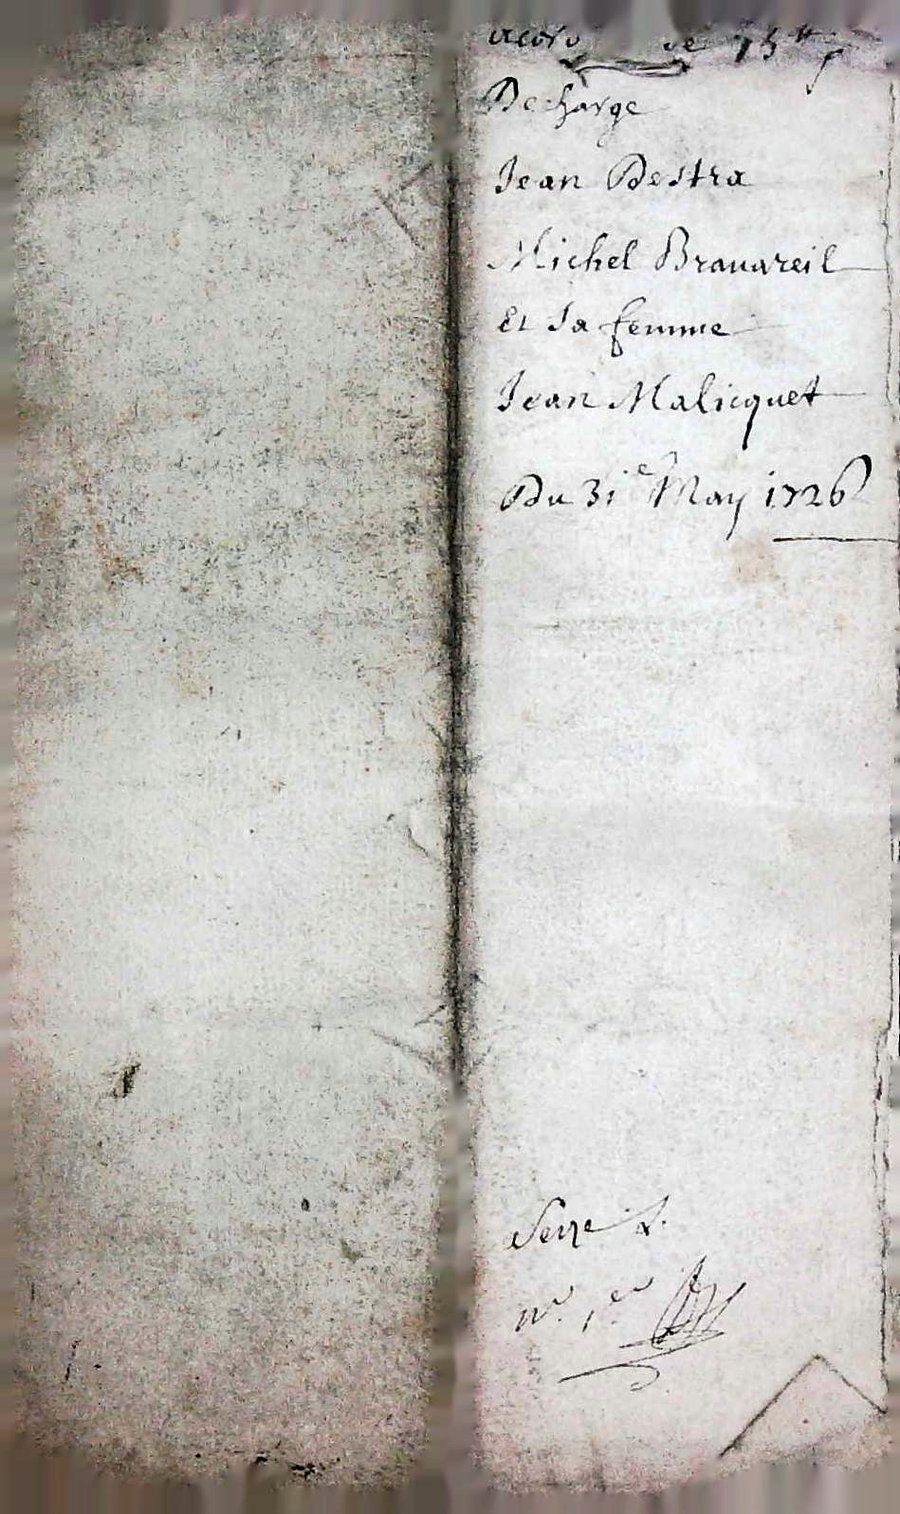 Acord de 75 tt
Decharge
Jean Destra
Michel Brauareil
Et sa femme
Jean Malicquet
Du 31e May 1726
n.o 1er